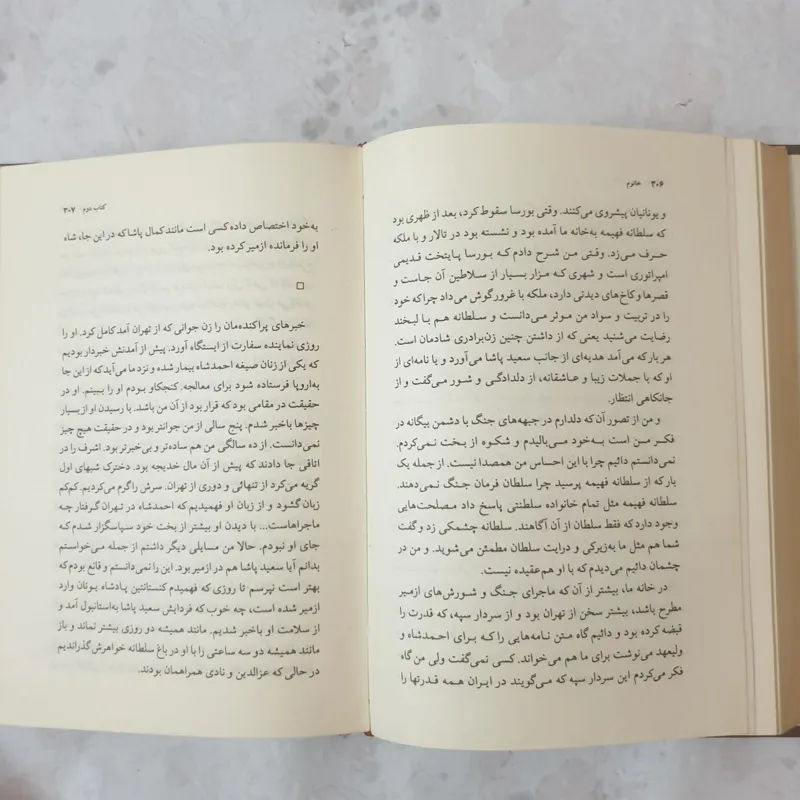 ۳۰۶ خانوم
و یونانیان پیشروی می‌کنند. وقتی بورسا سقوط کرد، بعد از ظهری بود
که سلطانه فهیمه به‌خانه ما آمده بود و نشسته بود در تالار و با ملکه
حرف می‌زد. وقتی من شرح دادم که بورسا پایتخت قدیمی
امپراتوری است و شهری که مزار بسیار از سلاطین آن جاست و
قصرها و کاخ‌های دیدنی دارد، ملکه با غرور گوش می‌داد چرا که خود
را در تربیت و سواد من موثر می‌دانست و سلطانه هم با لبخند
رضایت می‌شنید یعنی که از داشتن چنین زن‌برادری شادمان است.
هر بار که می آمد هدیه‌ای از جانب سعید پاشا می‌آورد و یا نامه‌ای از
او که با جملات زیبا و عاشقانه، از دلدادگی و شور می‌گفت و از
جانکاهی انتظار.
و من از تصور آن که دلدارم در جبهه‌های جنگ با دشمن بیگانه در
فکر من است به‌خود می‌بالیدم و شکوه از بخت نمی‌کردم.
نمی‌دانستم دائیم چرا با این احساس من همصدا نیست. از جمله یک
بار که از سلطانه فهیمه پرسید چرا سلطان فرمان جنگ نمی‌دهند.
سلطانه فهیمه مثل تمام خانواده سلطنتی پاسخ داد مصلحت‌هایی
وجود دارد که فقط سلطان از آن آگاهند. سلطانه چشمکی زد و گفت
شما هم مثل ما به‌زیرکی و درایت سلطان مطمئن می‌شوید. و من در
چشمان دائیم می‌دیدم که با او هم‌عقیده نیست.
در خانه ما، بیشتر از آن که ماجرای جنگ و شورش‌های ازمیر
مطرح باشد، بیشتر سخن از تهران بود و از سردار سپه، که قدرت را
قبضه کرده بود و دائیم گاه متن نامه‌هایی را که برای احمدشاه و
ولیعهد می‌نوشت برای ما هم می‌خواند. کسی نمی‌گفت ولی من گاه
فکر می‌کردم این سردار سپه که می‌گویند در ایران همه قدرتها را
کتاب دوم ۳۰۷
به‌خود اختصاص داده کسی است مانند کمال پاشا که در این جا، شاه
او را فرمانده ازمیر کرده بود.
خبرهای پراکنده‌مان را زن جوانی که از تهران آمد کامل کرد. او را
روزی نماینده سفارت از ایستگاه آورد. پیش از آمدنش خبردار بودیم
که یکی از زنان صیغه احمدشاه بیمار شده و نزد ما می‌آید که از این جا
به‌اروپا فرستاده شود برای معالجه. کنجکاو بودم او را ببینم. او در
حقیقت در مقامی بود که قرار بود از آن من باشد. با رسیدن او از بسیار
چیزها باخبر شدم. پنج سالی از من جوانتر بود و در حقیقت هیچ چیز
نمی‌دانست. از ده سالگی من هم ساده‌تر و بی‌خبرتر بود. اشرف را در
اتاقی جا دادند که پیش از آن مال خدیجه بود. دخترک شبهای اول
گریه می‌کرد از تنهائی و دوری از تهران. سرش را گرم می‌کردیم. کم‌کم
زبان گشود و از زبان او فهمیدیم که احمدشاه در تهران گرفتار چه
ماجراهاست... با دیدن او بیشتر از بخت خود سپاسگزار شدم که
جای او نبودم. حالا من مسایلی دیگر داشتم از جمله می‌خواستم
بدانم آیا سعید پاشا هم در ازمیر بود. این را نمی‌دانستم و قانع بودم که
بهتر است نپرسم تا روزی که فهمیدم کنستانتین پادشاه یونان وارد
ازمیر شده است، چه خوب که فردایش سعید پاشا به‌استانبول آمد و
از سلامت او باخبر شدیم. مانند همیشه دو روزی بیشتر نماند و باز
مانند همیشه دو سه ساعتی را با او در باغ سلطانه خواهرش گذراندیم
در حالی که عزالدین و نادی همراهمان بودند.